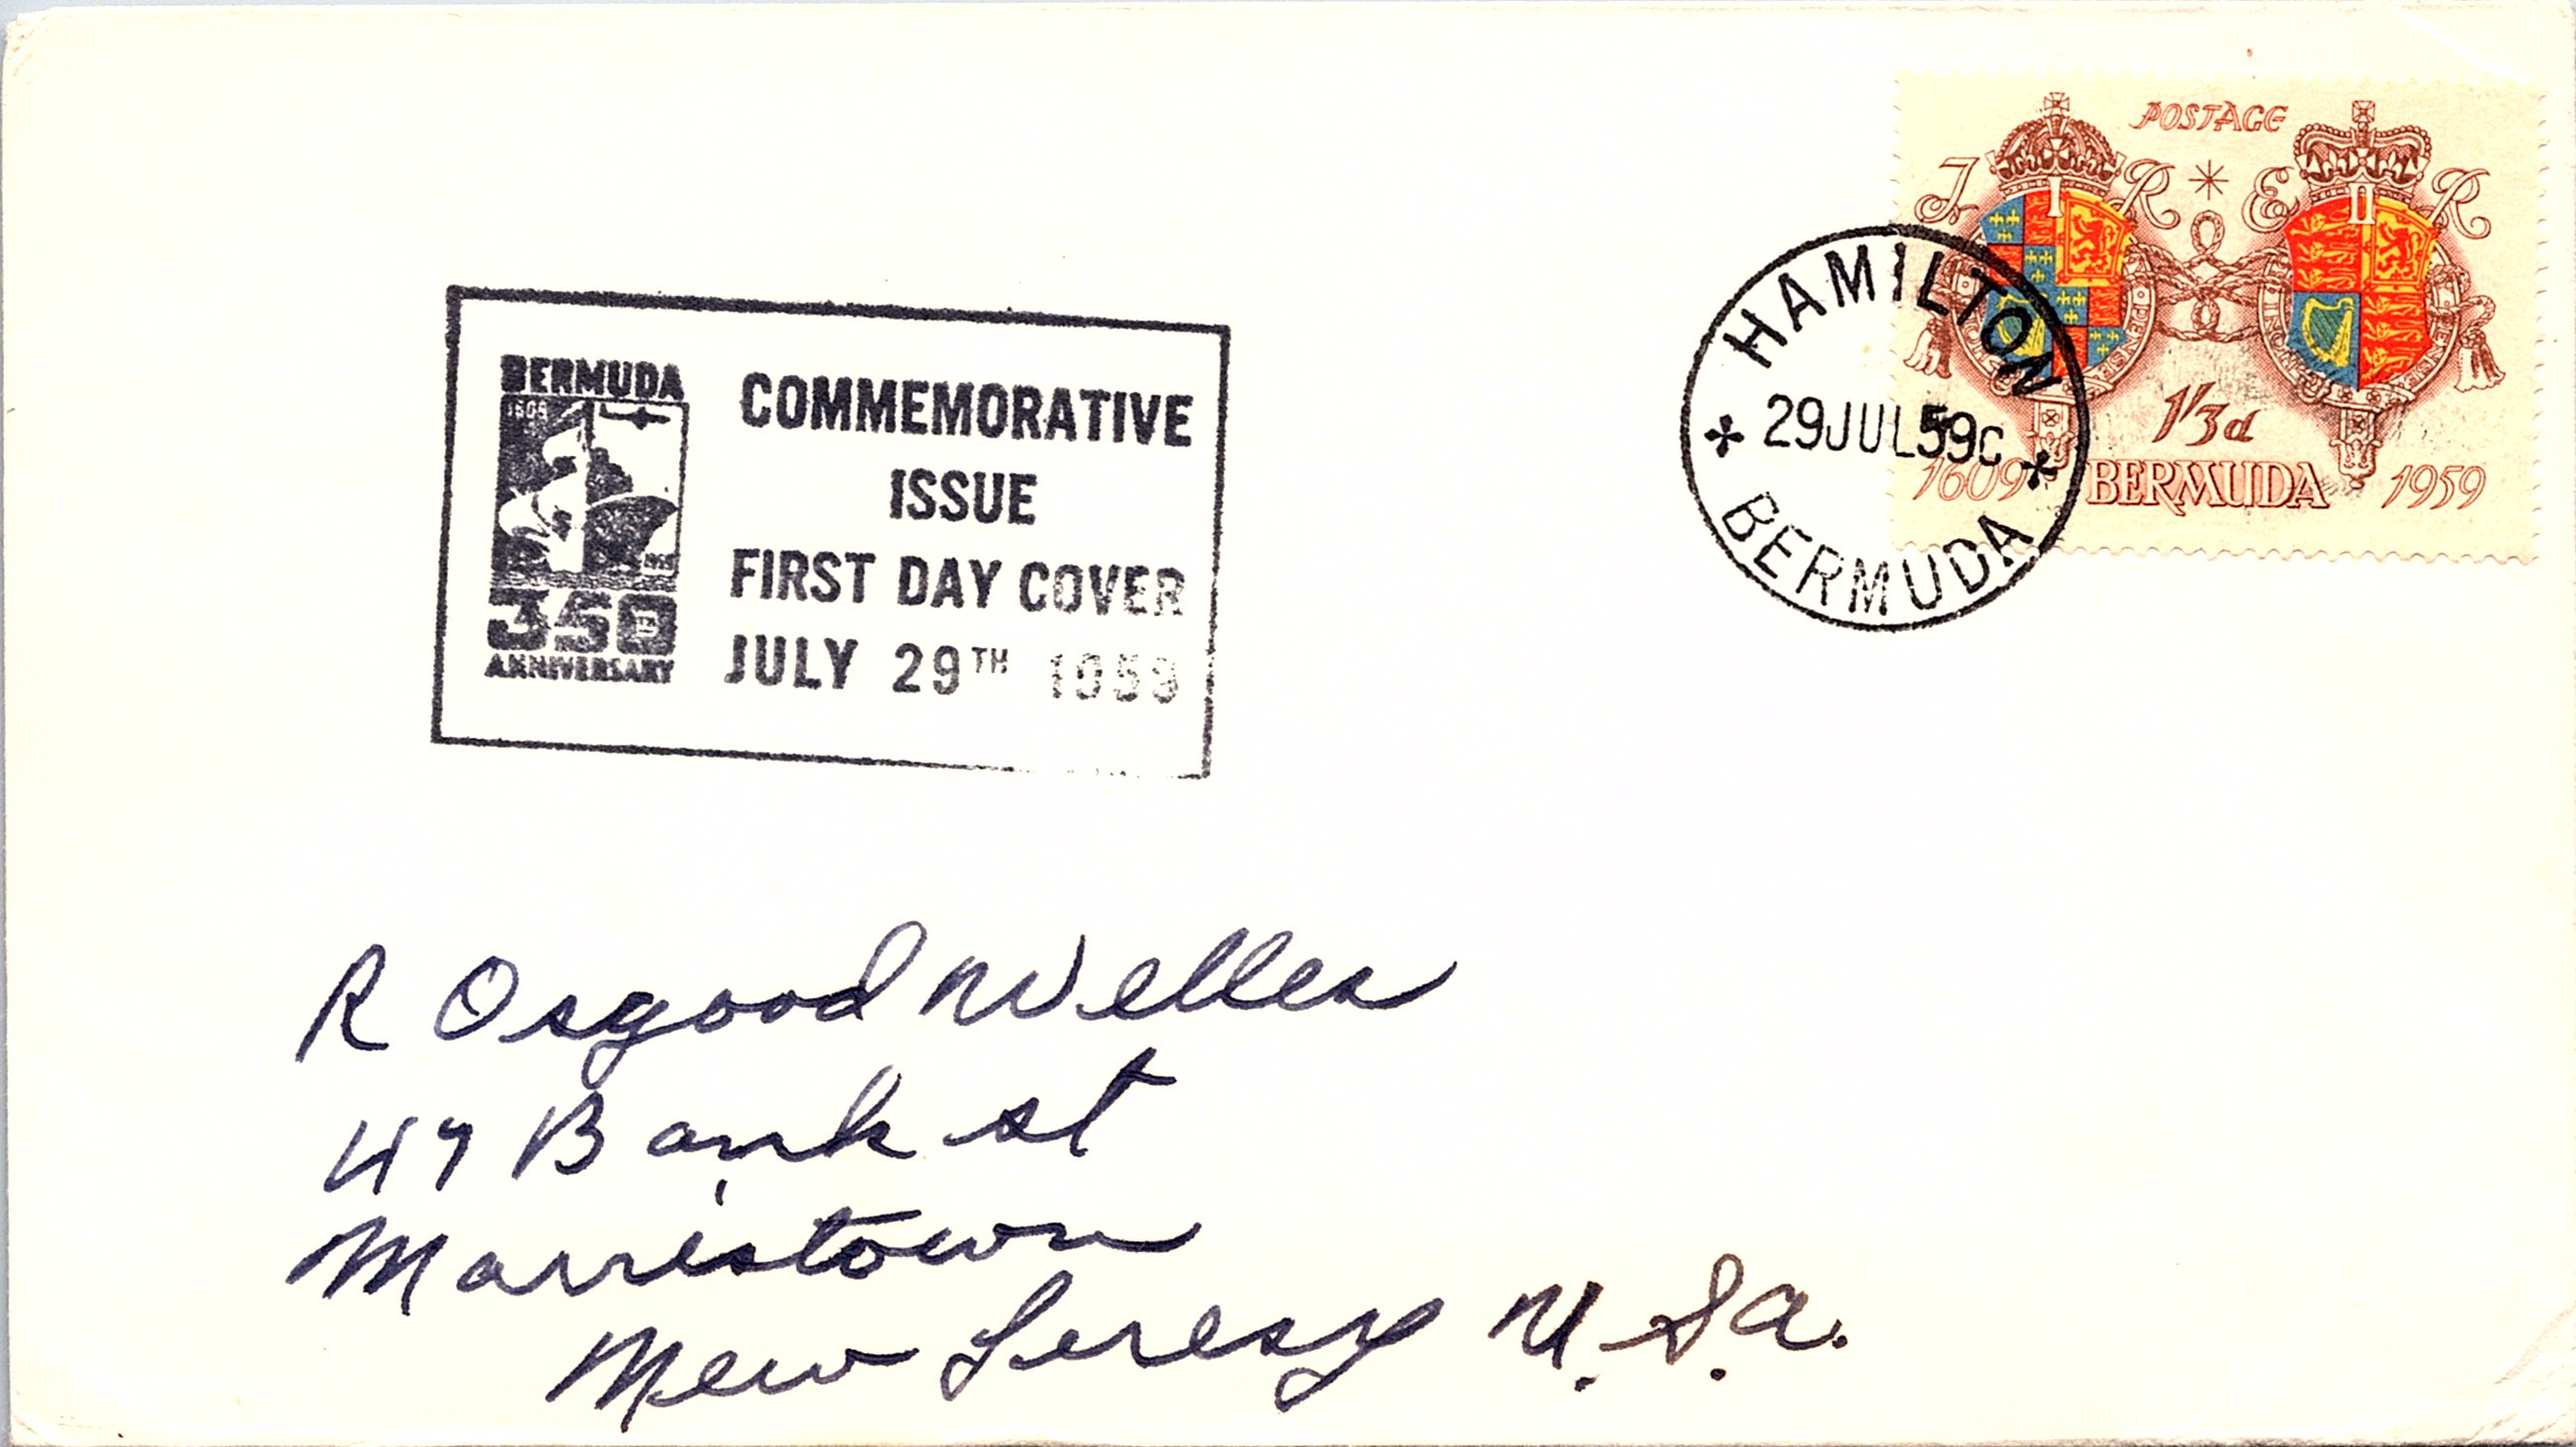 POSTAGE
I I R * E II R
1'3d
1609 BERMUDA 1959
HAMILTON
29JUL59C
BERMUDA
BERMUDA
1609
1959
350
ANNIVERSARY
COMMEMORATIVE
ISSUE
FIRST DAY COVER
JULY 29TH 1959
R Osgood Welles
47 Bank st
Morristown
New Jeresy U.S.A.